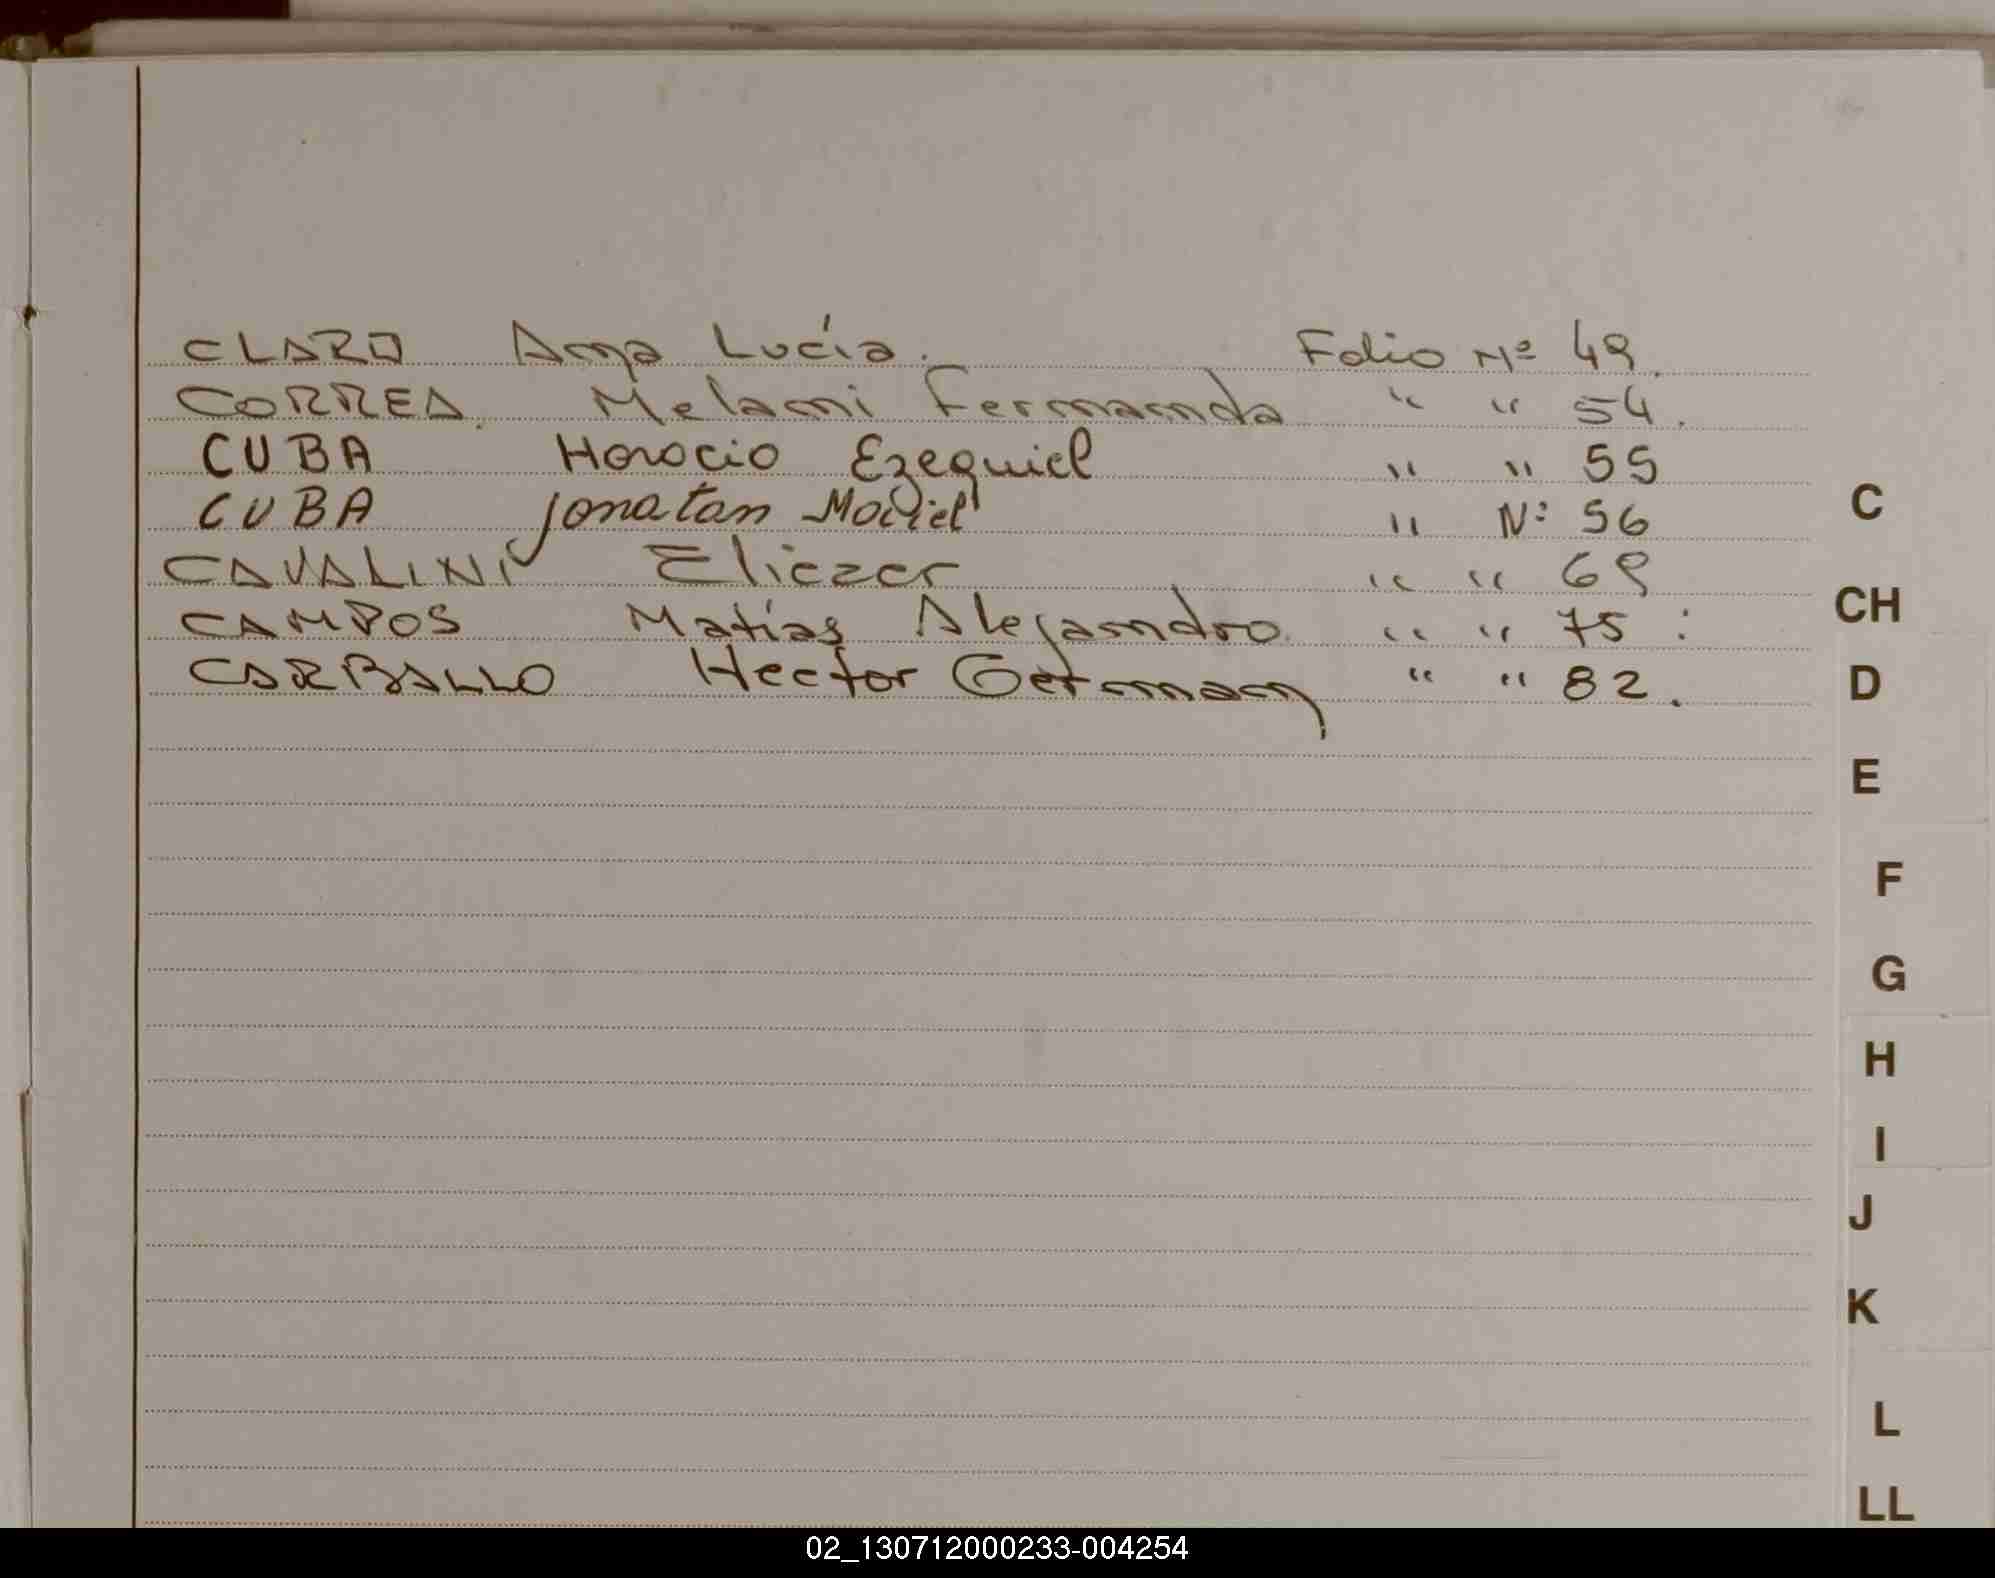 CLARO Ana Lucía. Folio Nº 49.
CORREA Melani Fernanda " " 54.
CUBA Horacio Ezequiel " " 55
CUBA Jonatan Maciel " Nº 56
CAVALINI Eliezer " " 69
CAMPOS Matías Alejandro " " 75 :
CARBALLO Hector German " " 82.
C
CH
D
E
F
G
H
I
J
K
L
LL
02_130712000233-004254